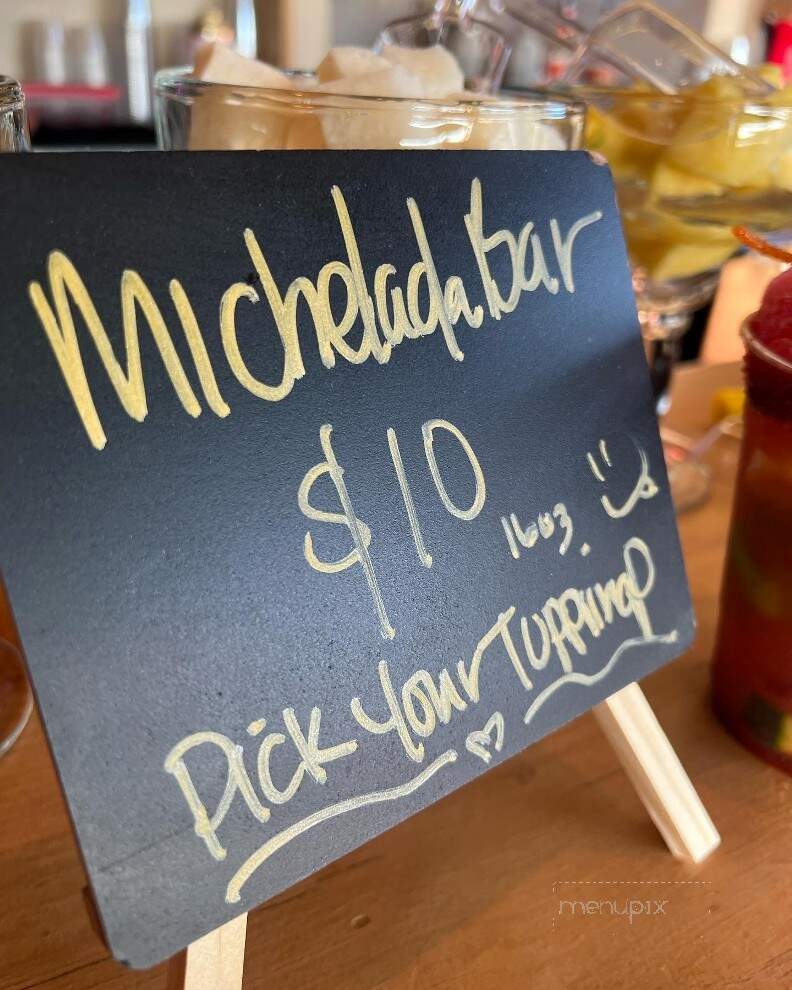 Michelada Bar
$10
16oz.
Pick Your Topping
menupix